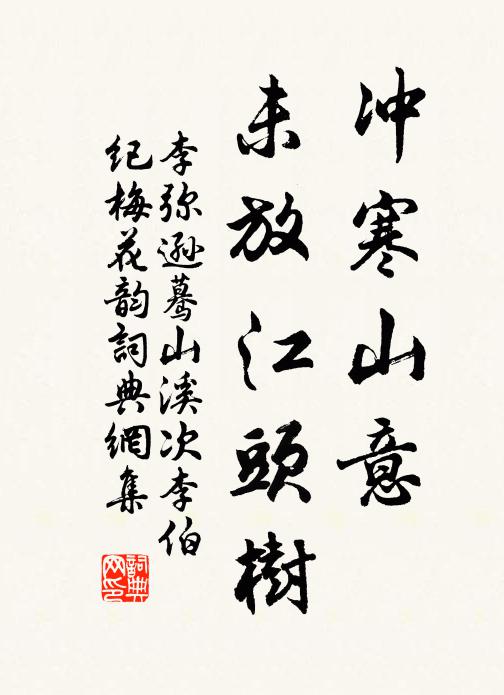 冲寒山意
未放江頭樹
李弥遜驀山溪次李伯
紀梅花韵詞典網集
詞典
网印